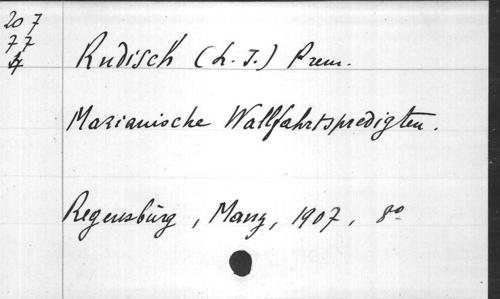 20,7
77
4
Rudisch (L. J.) Prem.
Marianische Wallfahrtspredigten.
Regensburg, Manz, 1907, 8º